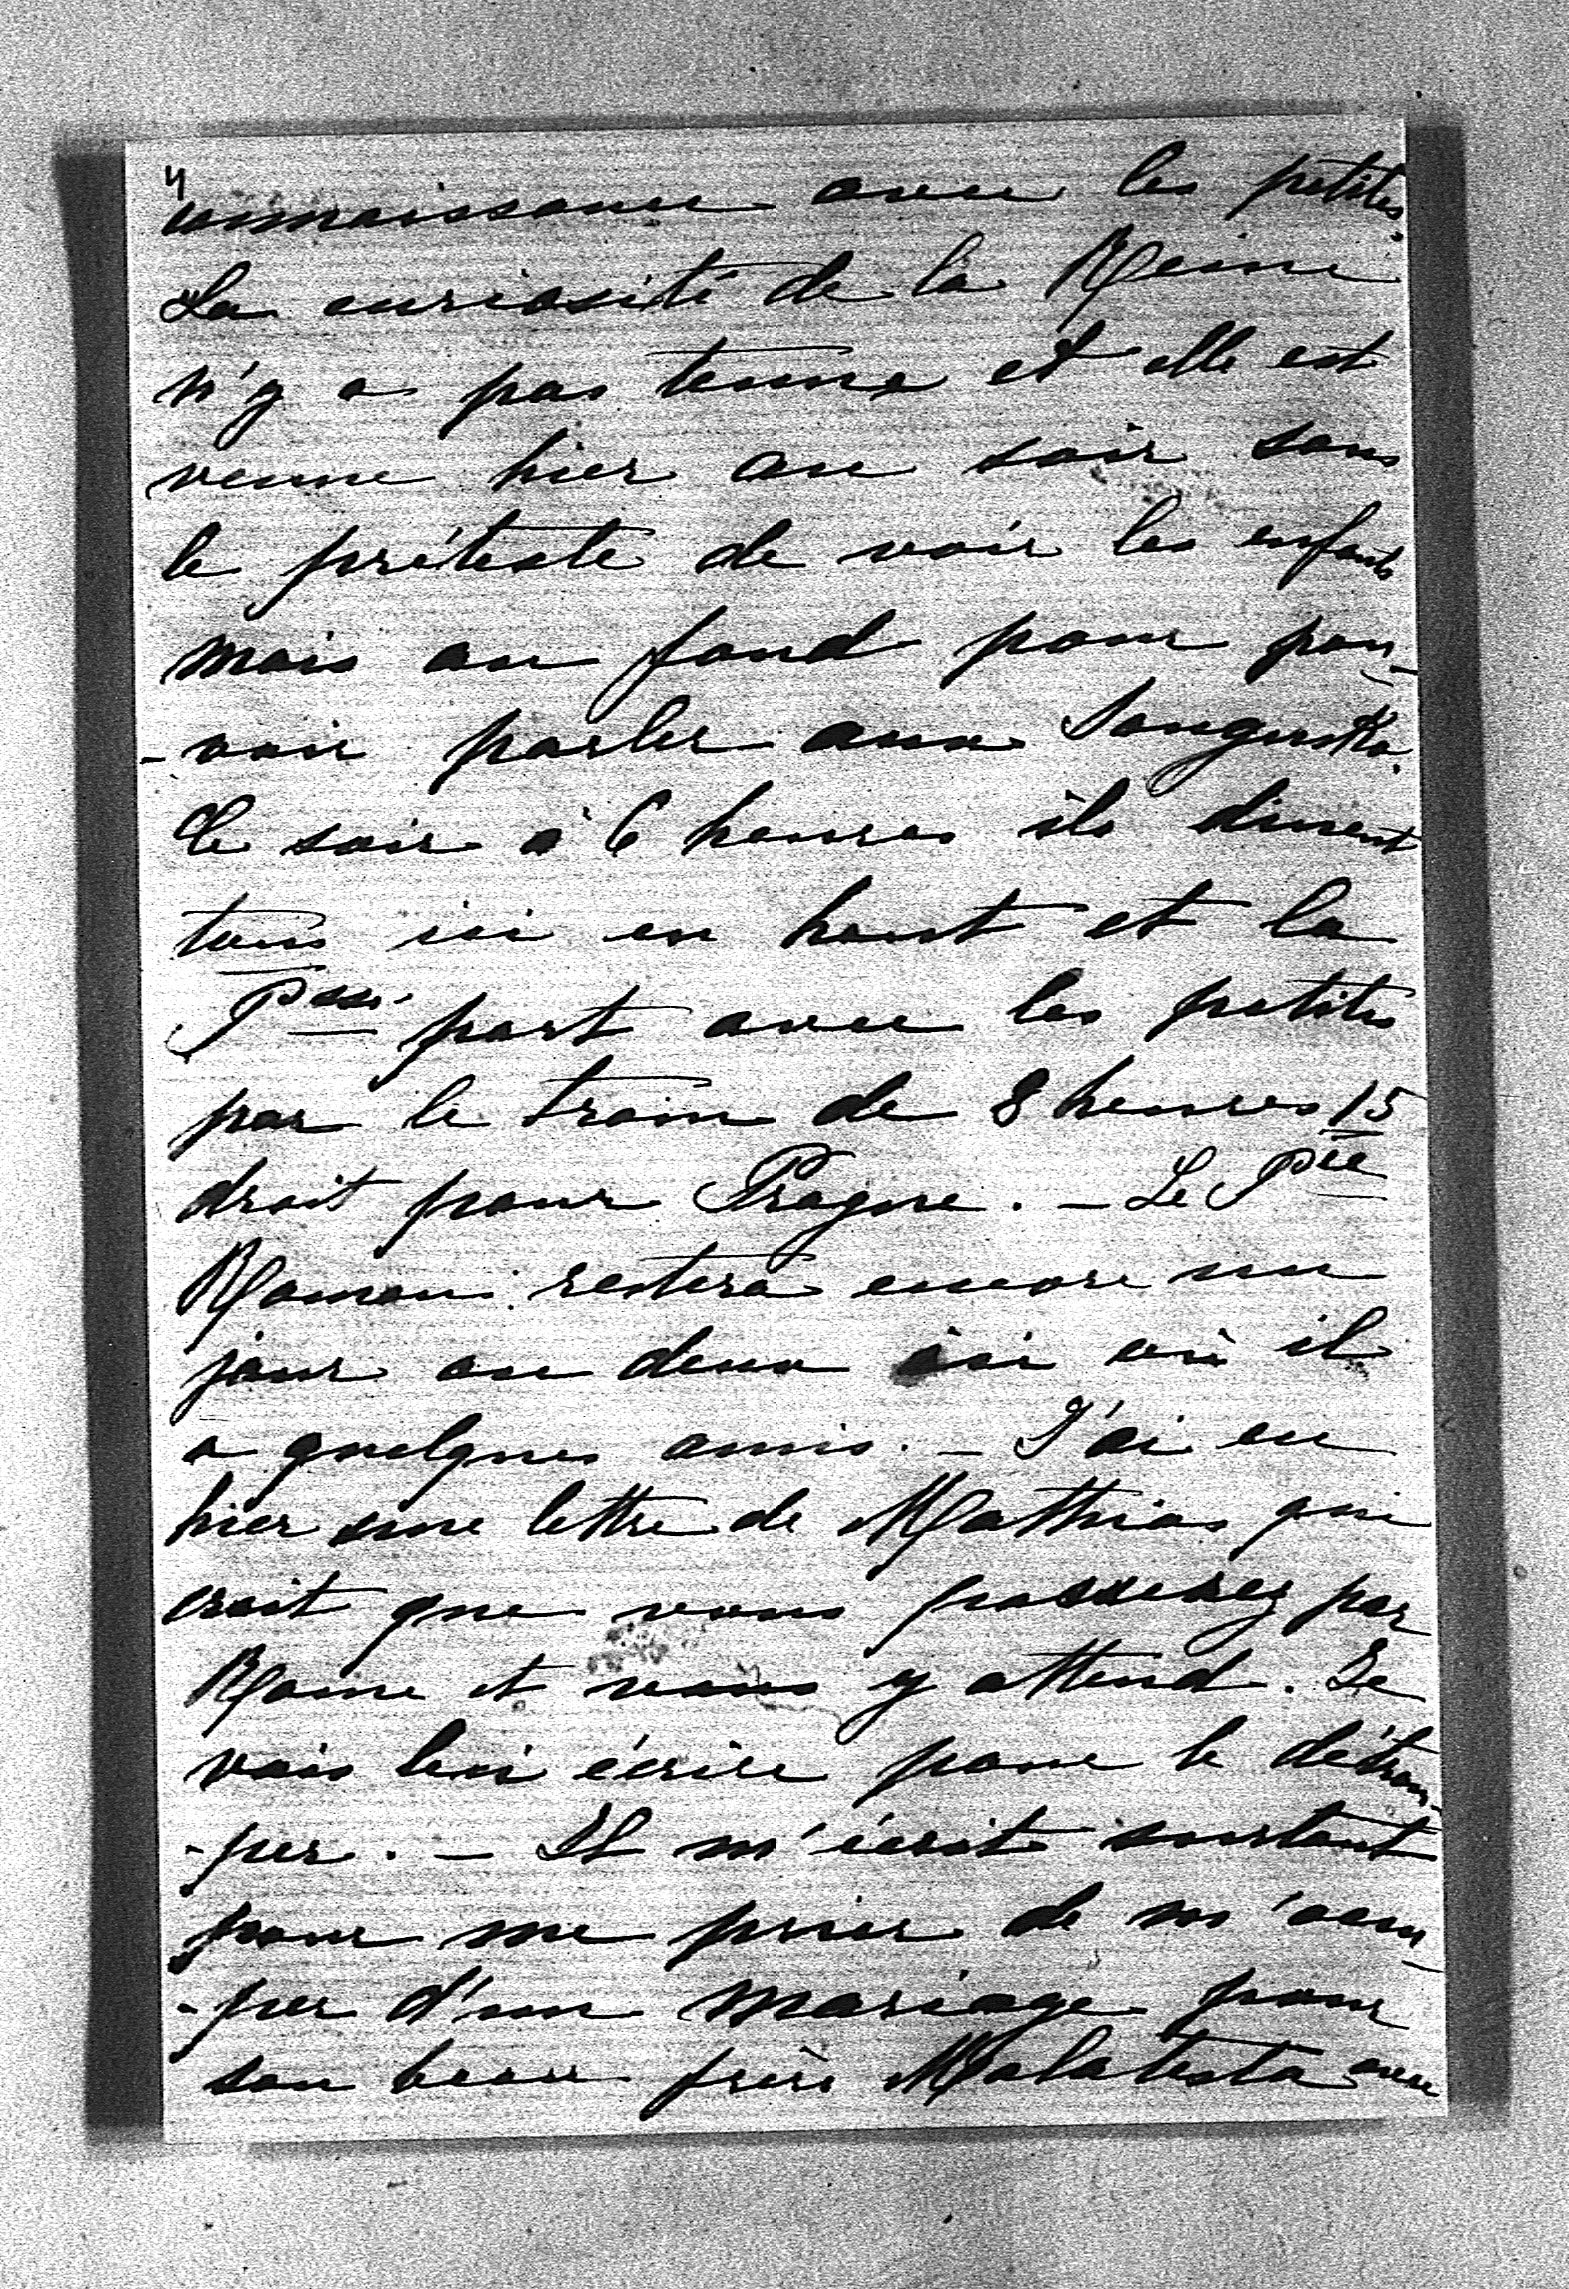 "connaissance avec les petites.
La curiosité de la Reine
n'y a pas tenue et elle est
venue hier au soir sous
le préteste de voir les enfants
mais au fond pour pou-
-voir parler aux Sangusko.
Ce soir à 6 heures ils dinent
tous ici en haut et la
Psse part avec les petites
par le train de 8 heures 15
droit pour Prague. – Le Pce
Roman restera encore un
jour ou deux ici où il
a quelques amis. – J'ai eu
hier une lettre de Mathias qui
croit que vous passerez par
Rome et vous y attend. Je
vais lui écrire pour le détrom-
-per. – Il m'écrit surtout
pour me prier de m'occu-
-per d'un mariage pour
son beau frère Malatesta avec